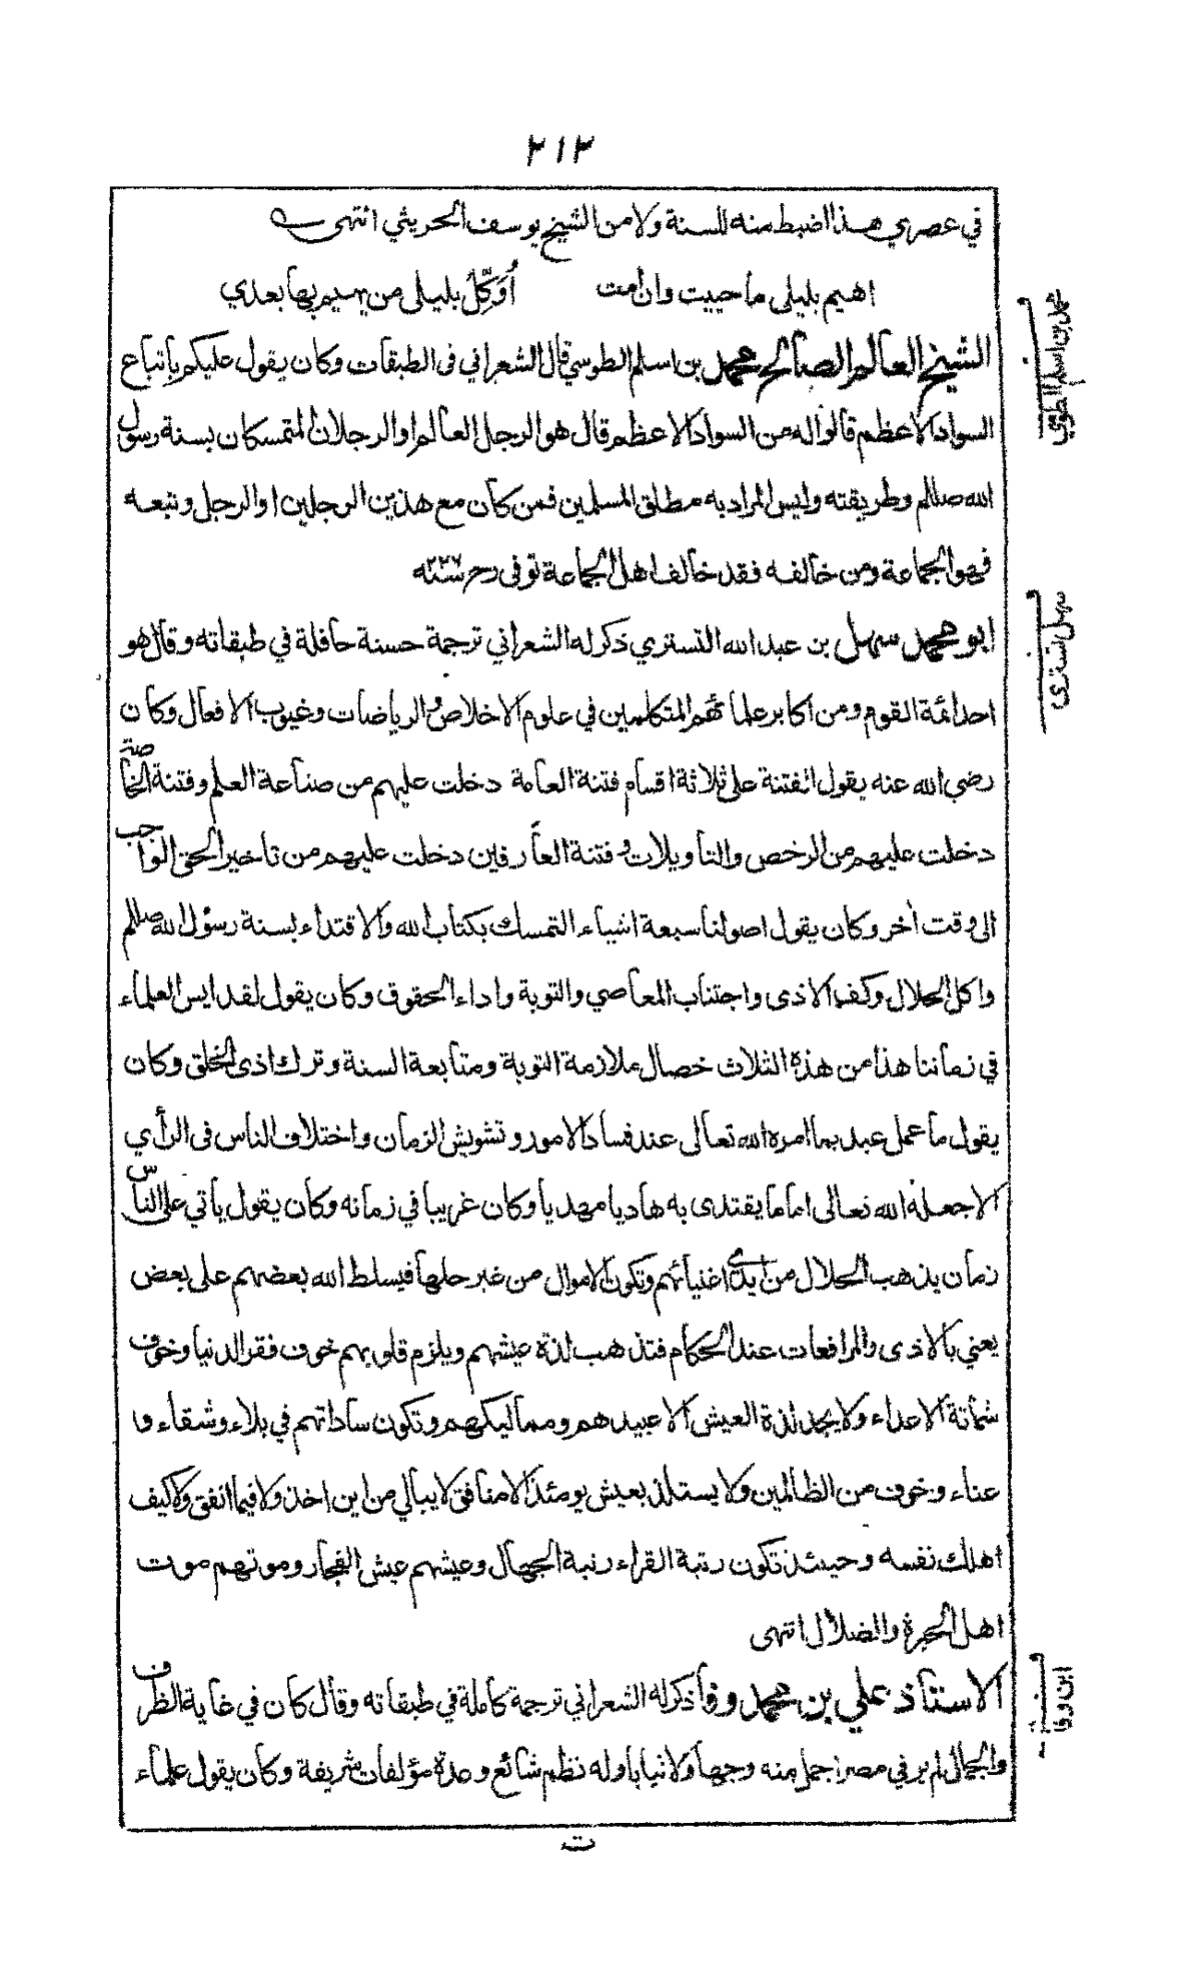 ٢١٢
في عصري هذا اضبط منه للسنة ولا من الشيخ يوسف الحريثي انتهى
اهيم بليلى ما حييت وان امت اُوَكِّلُ بليلى من يهيم بها بعدي
الشيخ العالم الصالح محمد بن اسلم الطوسي قال الشعراني فى الطبقات وكان يقول عليكم باتباع
السواد الاعظم قالوا له من السواد الاعظم قال هو الرجل العالم او الرجلان المتمسكان بسنة رسول
الله صللم وطريقته وليس المراد به مطلق المسلمين فمن كان مع هذين الرجلين او الرجل وتبعه
فهو الجماعة ومن خالفه فقد خالف اهل الجماعة توفى رح سنه ٢٢٦
ابو محمد سهل بن عبد الله التستري ذكر له الشعراني ترجمة حسنة حافلة في طبقاته وقال هو
احد ائمة القوم ومن اكابر علمائهم المتكلمين في علوم الاخلاص والرياضات وغيوب الافعال وكان
رضي الله عنه يقول الفتنة على ثلاثة اقسام فتنة العامة دخلت عليهم من صناعة العلم وفتنة الخاصة
دخلت عليهم من الرخص والتأويلات وفتنة العارفين دخلت عليهم من تأخير الحق الواجب
الى وقت اخر وكان يقول اصولنا سبعة اشياء التمسك بكتاب الله والاقتداء بسنة رسول الله صللم
واكل الحلال وكف الاذى واجتناب المعاصي والتوبة واداء الحقوق وكان يقول لقد ايس العلماء
في زماننا هذا من هذه الثلاث خصال ملازمة التوبة ومتابعة السنة وترك اذى الخلق وكان
يقول ما عمل عبد بما امره الله تعالى عند فساد الامور وتشويش الزمان واختلاف الناس فى الرأي
الا جعله الله تعالى اماما يقتدى به هاديا مهديا وكان غريبا في زمانه وكان يقول يأتي على الناس
زمان يذهب الحلال من ايدي اغنيائهم وتكون الاموال من غير حلها فيسلط الله بعضهم على بعض
يعني بالاذى والمرافعات عند الحكام فتذهب لذة عيشهم ويلزم قلوبهم خوف فقر الدنيا وخوف
شماتة الاعداء ولا يجد لذة العيش الا عبيدهم ومماليكهم وتكون ساداتهم في بلاء وشقاء و
عناء وخوف من الظالمين ولا يستلذ بعيش يومئذ الا منافق لا يبالي من اين اخذ ولا فيما انفق ولا كيف
اهلك نفسه وحينئذ تكون رتبة القراء رتبة الجهال وعيشهم عيش الفجار وموتهم موت
اهل الحيرة والضلال انتهى
الاستاذ علي بن محمد وفا ذكر له الشعراني ترجمة كاملة في طبقاته وقال كان في غاية الظرف
والجمال لم ير في مصر اجمل منه وجها ولا ثيابا وله نظم شائع وعدة مؤلفات شريفة وكان يقول علماء
ت
محمد بن اسلم الطوسي
سهل تستري
ابن وفا